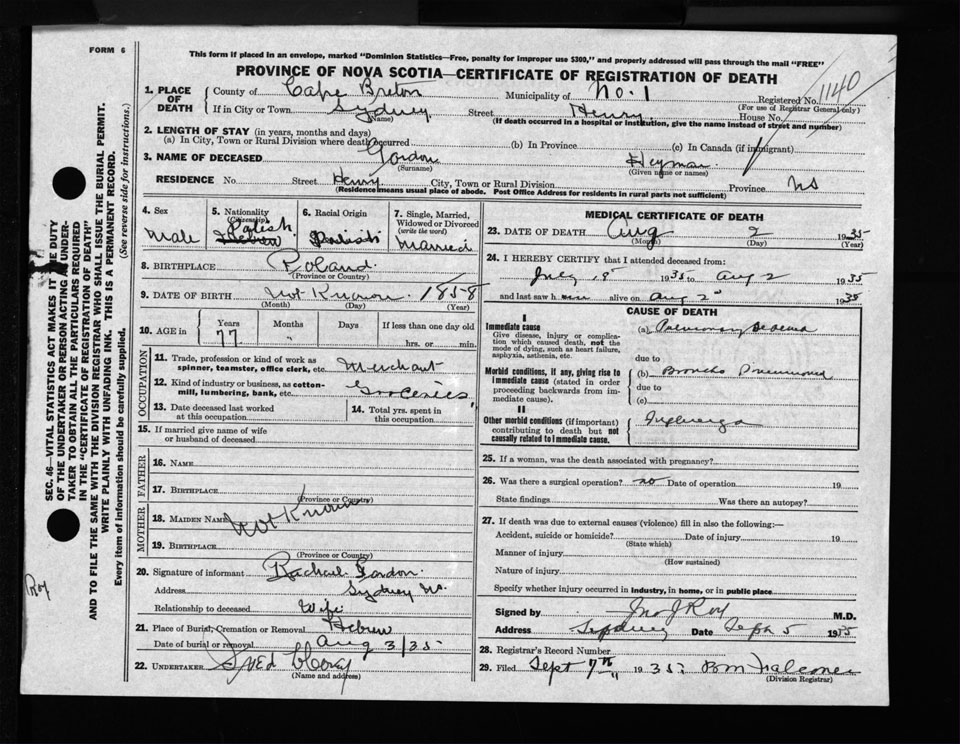 FORM 6
This form if placed in an envelope, marked "Dominion Statistics—Free, penalty for improper use $300," and properly addressed will pass through the mail "FREE"
PROVINCE OF NOVA SCOTIA—CERTIFICATE OF REGISTRATION OF DEATH
1. PLACE OF DEATH
County of Cape Breton Municipality of No. 1 Registered No. 1140
(For use of Registrar General only)
If in City or Town Sydney Street Henry House No.
(Name)
(If death occurred in a hospital or institution, give the name instead of street and number)
2. LENGTH OF STAY (in years, months and days)
(a) In City, Town or Rural Division where death occurred (b) In Province (c) In Canada (if immigrant)
3. NAME OF DECEASED Gordon Heyman
(Surname) (Given name or names)
RESIDENCE No. Street Henry City, Town or Rural Division Province NS
(Residence means usual place of abode. Post Office Address for residents in rural parts not sufficient)
4. Sex
Male
5. Nationality
(Citizenship)
Polish
Hebrew
6. Racial Origin
Polish
7. Single, Married, Widowed or Divorced
(write the word)
Married
8. BIRTHPLACE Poland
(Province or Country)
9. DATE OF BIRTH Not Known 1858
(Month) (Day) (Year)
10. AGE in Years Months Days If less than one day old
77 " hrs. or min.
OCCUPATION
11. Trade, profession or kind of work as spinner, teamster, office clerk, etc. Merchant
12. Kind of industry or business, as cotton-mill, lumbering, bank, etc. Groceries
13. Date deceased last worked at this occupation
14. Total yrs. spent in this occupation
15. If married give name of wife or husband of deceased
FATHER
16. NAME
17. BIRTHPLACE
(Province or Country)
MOTHER
18. MAIDEN NAME Not Known
19. BIRTHPLACE
(Province or Country)
20. Signature of informant Rachael Gordon
Address Sydney NS.
Relationship to deceased Wife
21. Place of Burial, Cremation or Removal Hebrew
Date of burial or removal Aug 3/35
22. UNDERTAKER
(Name and address)
MEDICAL CERTIFICATE OF DEATH
23. DATE OF DEATH Aug 2 1935
(Month) (Day) (Year)
24. I HEREBY CERTIFY that I attended deceased from:
July 18 1935 to Aug 2 1935
and last saw him alive on Aug 2 1935
CAUSE OF DEATH
I
Immediate cause
Give disease, injury or complication which caused death, not the mode of dying, such as heart failure, asphyxia, asthenia, etc.
(a) Pulmonary Oedema
due to
Morbid conditions, if any, giving rise to immediate cause (stated in order proceeding backwards from immediate cause).
(b) Broncho Pneumonia
due to
(c)
II
Other morbid conditions (if important) contributing to death but not causally related to immediate cause.
Influenza
25. If a woman, was the death associated with pregnancy?
26. Was there a surgical operation? no Date of operation 19
State findings Was there an autopsy?
27. If death was due to external causes (violence) fill in also the following:—
Accident, suicide or homicide? Date of injury 19
(State which)
Manner of injury
(How sustained)
Nature of injury
Specify whether injury occurred in industry, in home, or in public place
Signed by Jno J Roy M.D.
Address Sydney Date Sept 5 1935
28. Registrar's Record Number
29. Filed Sept 7th 1935
(Division Registrar)
SEC. 46—VITAL STATISTICS ACT MAKES IT THE DUTY
OF THE UNDERTAKER OR PERSON ACTING AS UNDER-
TAKER TO OBTAIN ALL THE PARTICULARS REQUIRED
IN THE "CERTIFICATE OF REGISTRATION OF DEATH"
AND TO FILE THE SAME WITH THE DIVISION REGISTRAR WHO SHALL ISSUE THE BURIAL PERMIT.
WRITE PLAINLY WITH UNFADING INK. THIS IS A PERMANENT RECORD.
Every item of information should be carefully supplied. (See reverse side for instructions.)
Roy